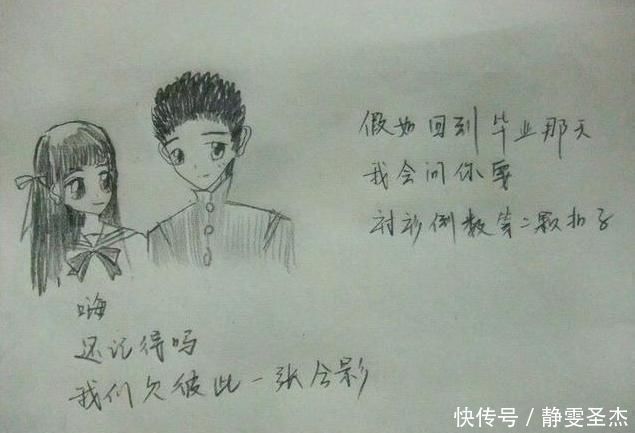 假如回到毕业那天
我会问你要
衬衫倒数第二颗扣子
嗨
还记得吗
我们欠彼此一张合影
快传号／静雯圣杰